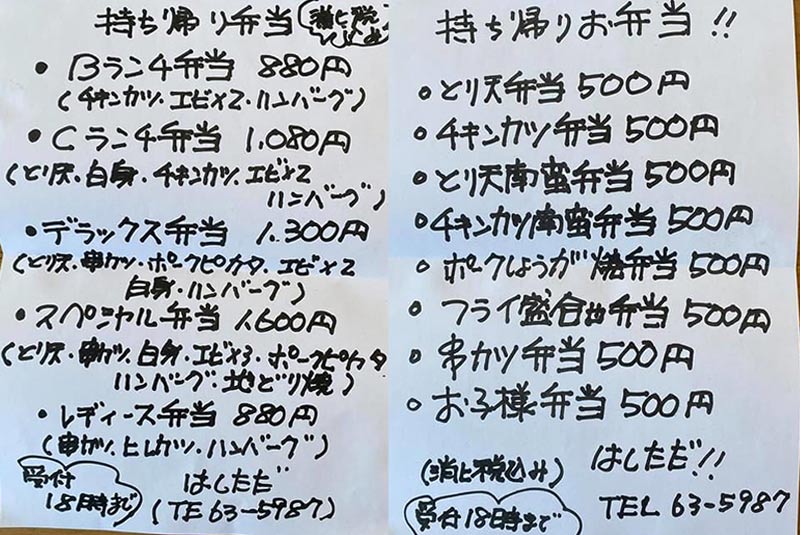 持ち帰り弁当 消ヒ税込め
・Bランチ弁当 880円
(チキンカツ.エビ×2・ハンバーグ)
・Cランチ弁当 1,080円
(とり天.白身.チキンカツ.エビ×2
ハンバーグ)
・デラックス弁当 1,300円
(とり天.串カツ.ポークピカタ.エビ×2
白身.ハンバーグ)
・スペシャル弁当 1,600円
(とり天.串カツ.白身.エビ×3.ポークピカタ
ハンバーグ.地どり焼)
・レディース弁当 880円
(串カツ.ヒレカツ.ハンバーグ)
受付
18時まで
はしただ
(TEL 63-5987)
持ち帰りお弁当!!
・とり天弁当 500円
・チキンカツ弁当 500円
・とり天南蛮弁当 500円
・チキンカツ南蛮弁当 500円
・ポークしょうが焼弁当 500円
・フライ盛合せ弁当 500円
・串カツ弁当 500円
・お子様弁当 500円
(消ヒ税込み)
はしただ!!
受付18時まで
TEL 63-5987